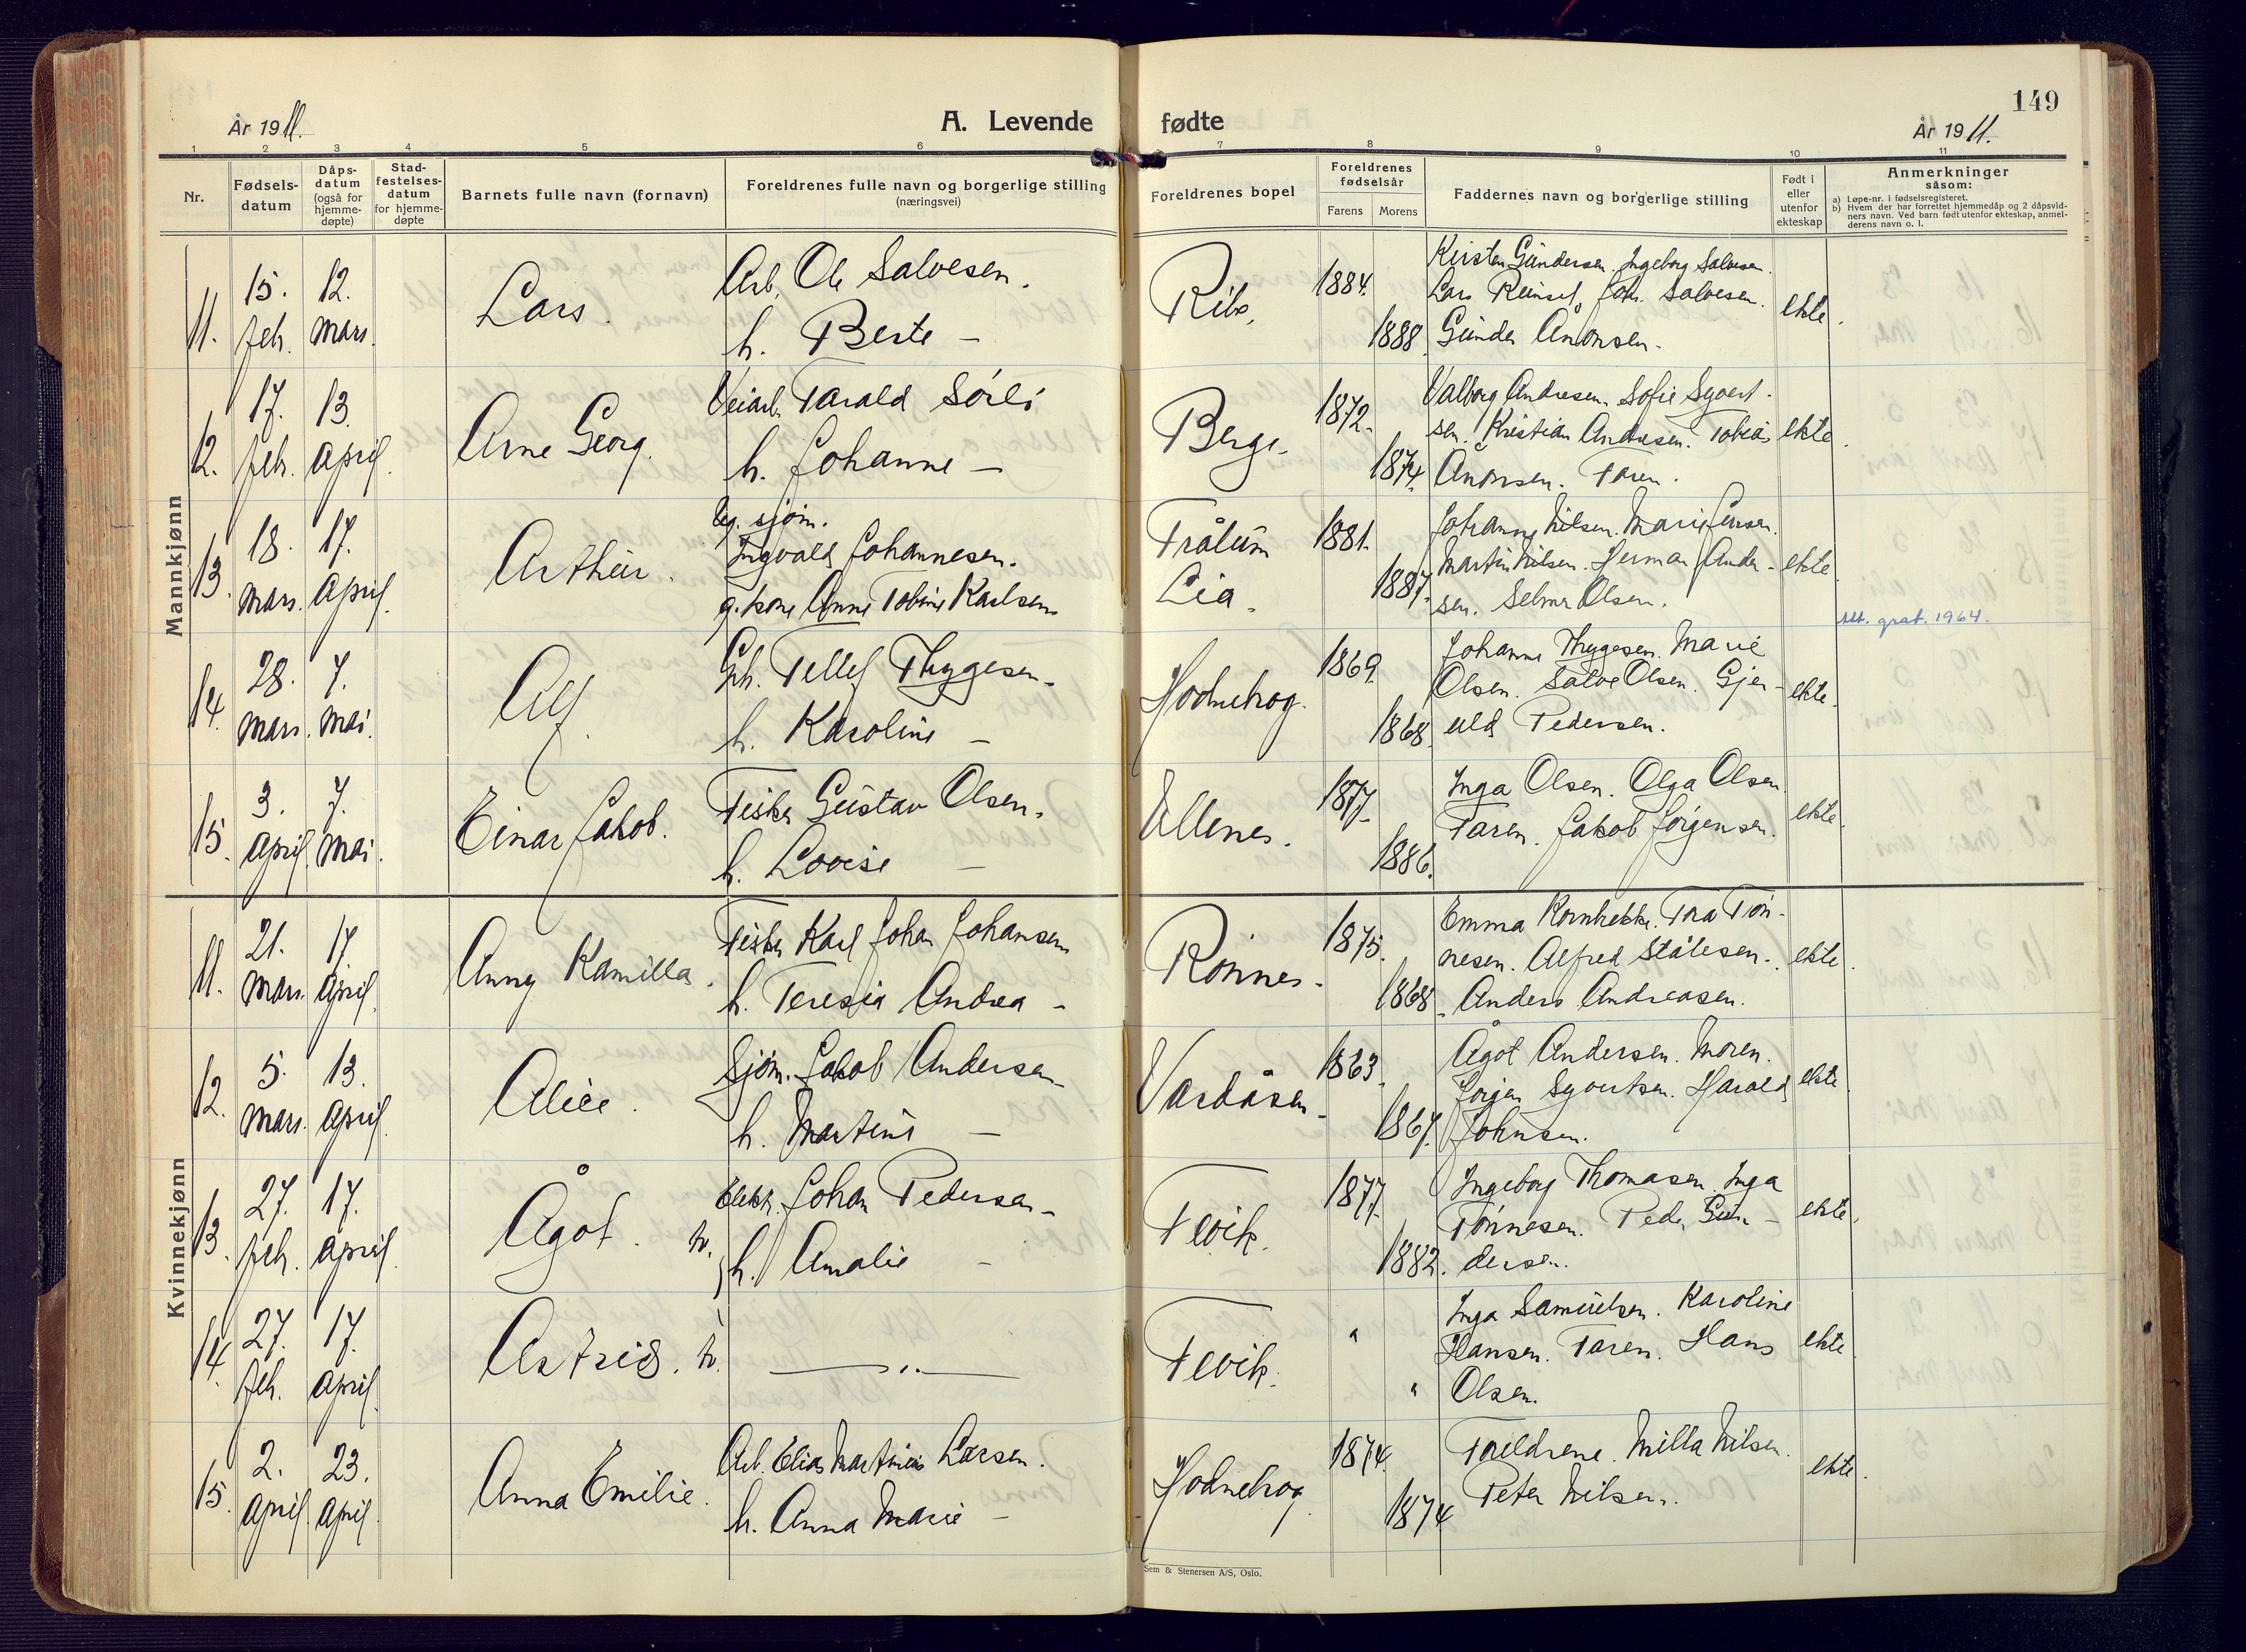 149
År 1911.
A. Levende fødte
År 1911.
1 2 3 4 5 6 7 8 9 10 11
Nr.
Fødsels-
datum
Dåps-
datum
(også for
hjemme-
døpte)
Stad-
festelses-
datum
for hjemme-
døpte
Barnets fulle navn (fornavn)
Foreldrenes fulle navn og borgerlige stilling
(næringsvei)
Foreldrenes bopel
Foreldrenes
fødselsår
Farens Morens
Faddernes navn og borgerlige stilling
Født i
eller
utenfor
ekteskap
Anmerkninger
såsom:
a) Løpe-nr. i fødselsregisteret.
b) Hvem der har forrettet hjemmedåp og 2 dåpsvid-
ners navn. Ved barn født utenfor ekteskap, anmel-
derens navn o. l.
Mannkjønn
11. 15. feb. 12. mars. Lars.
Arb. Ole Salvesen.
h. Berte —
1884.
1888
Kirsten Gundersen. Ingeborg Salvesen.
Lars Joh. Salvesen.
Gunder Anonsen.
ekte.
12. 17. feb. 13. April. Arne Georg.
Veiarb. Tarald Sørli
h. Johanne —
Berge
1872.
1874.
Valborg Andresen. Sofie Syvert-
sen. Kristian Andresen. Tobias
Ånonsen. Faren.
ekte.
13. 18. mars. 17. April. Arthur.
Ug. sjøm.
Ingvald Johannesen.
g. kone Anne Tobine Karlsen
Fråtum
Lia.
1881.
1887.
Johanne Nilsen. Marie Jensen.
Martin Nilsen. Herman Ander-
sen. Selmer Olsen.
ekte.
Att. grat. 1964.
14. 28. mars. 7. mai. Alf.
Gbr. Tellef Thygesen.
h. Karoline —
Hodnebrog.
1869.
1868.
Johanne Thygesen. Marie
Olsen. Salve Olsen. Gjer-
uld Pedersen.
ekte.
15. 3. April. 7. mai. Einar Jakob.
Fisker Gustav Olsen.
h. Lovise —
Ullenes.
1877.
1886.
Inga Olsen. Olga Olsen
Faren. Jakob Jørgensen.
ekte.
Kvinnekjønn
11. 21. mars. 17. April. Anny Kamilla.
Fisker Karl Johan Johansen
h. Teresia Andrea —
Rønnes.
1875.
1868.
Emma Kornbekke. Tøn-
nesen. Alfred Ståtesen.
Anders Andreasen.
ekte.
12. 5. mars. 13. April. Alice.
Sjøm. Jakob Andersen
h. Martine —
Vardåsen
1863.
1867.
Ågot Andersen. Moren.
Jørgen Syvertsen. Harald
Johnsen.
ekte.
13. 27. feb. 17. April. Ågot. tv.
Elektr. Johan Pedersen
h. Amalie —
Fevik.
1877.
1882.
Ingeborg Thomasen. Inga
Tønnesen. Peder Gun-
dersen.
ekte.
14. 27. feb. 17. April. Astrid. tv.
— „ —
Fevik.
"
"
Inga Samuelsen. Karoline
Hansen. Faren. Hans
Olsen.
ekte.
15. 2. April. 23. April. Anna Emilie.
Arb. Elias Martinius Larsen.
h. Anna Marie —
Hodnebrog.
1874.
1874
Foreldrene. Milla Nilsen.
Peter Nilsen.
ekte.
Sem & Stenersen A/S, Oslo.